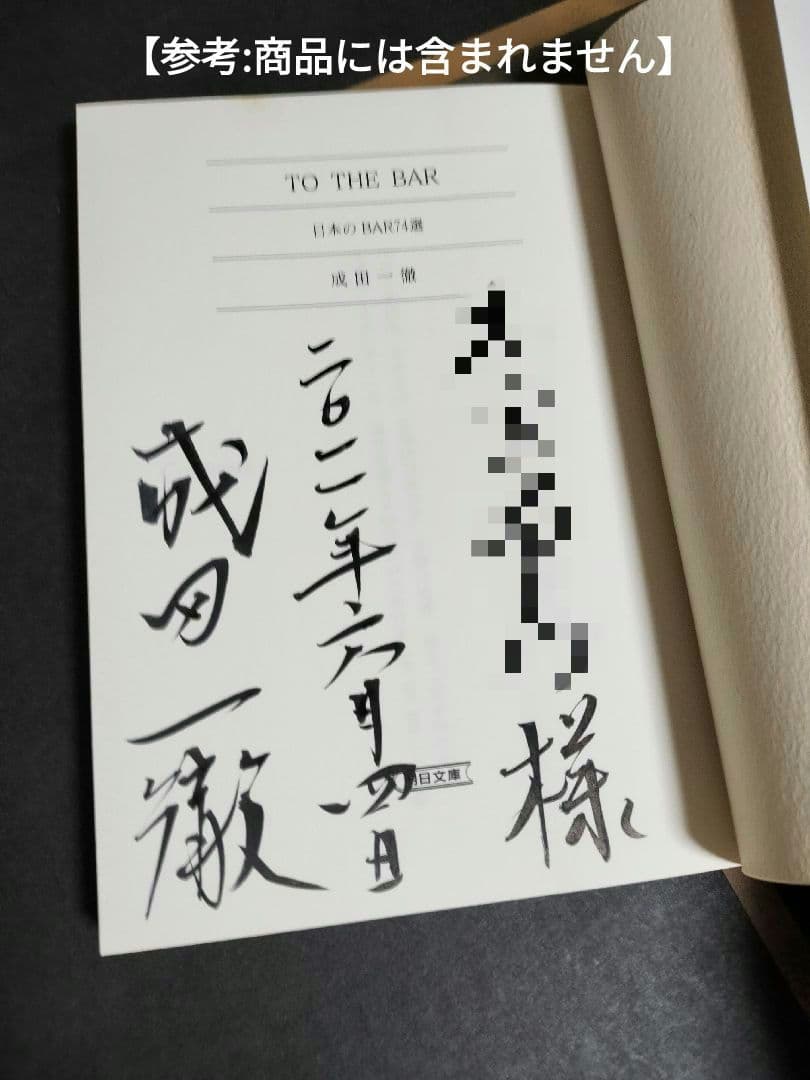 【参考:商品には含まれません】
TO THE BAR
日本のBAR74選
成田一徹
様
二〇一一年六月四日
成田一徹
朝日文庫